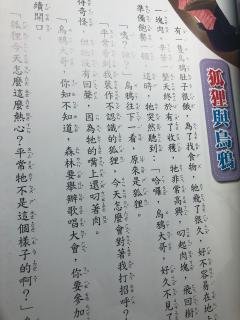 狐狸與烏鴉
有一隻烏鴉肚子很餓，為了找食物，牠飛了很久，好不容易在地上
一塊肉。辛苦了整天終於有了收穫，牠非常高興，叼起肉塊，飛回樹
準備飽餐一頓。這時，牠突然聽到：「哈囉，烏鴉大哥，好久不見了
「咦？」烏鴉往下一看，原來是狐狸
平常看到我裝作不認識的狐狸，今天怎麼會對著我打招呼？
得奇怪
沒有回聲，因為牠的嘴上還叼著肉。
「烏鴉大哥，你知不知道，森林要舉辦歌唱大會，你要參加
續開口
「狐狸今天怎麼這麼熱心？平常牠不是這個樣子的啊？」